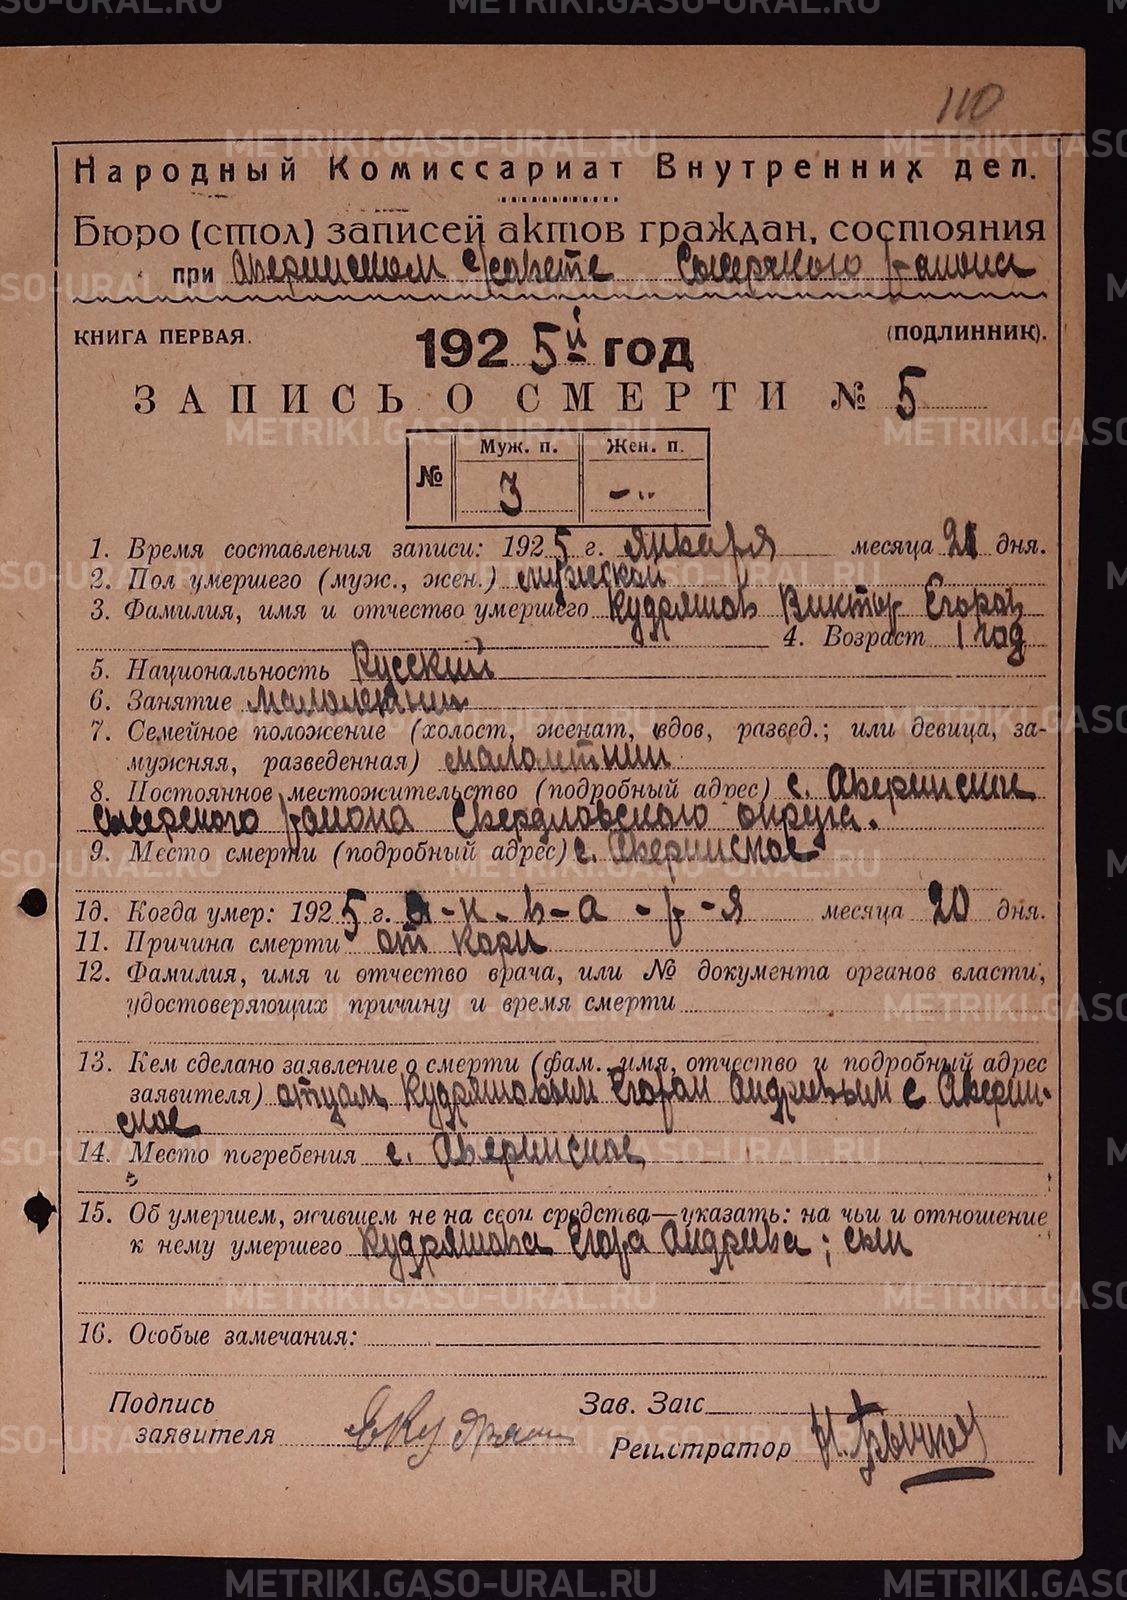 110
Народный Комиссариат Внутренних дел.
Бюро (стол) записей актов граждан, состояния
при Аверинском с/совете Сысертского района
КНИГА ПЕРВАЯ. 1925й год (ПОДЛИННИК).
ЗАПИСЬ О СМЕРТИ № 5
№ Муж. п. Жен. п.
3 -"
1. Время составления записи: 1925 г. января месяца 21 дня.
2. Пол умершего (муж., жен.) мужской
3. Фамилия, имя и отчество умершего Кудряшов Виктор Егоров
4. Возраст 1 год
5. Национальность Русский
6. Занятие малолетний
7. Семейное положение (холост, женат, вдов, развед.; или девица, за-
мужняя, разведенная) малолетний
8. Постоянное местожительство (подробный адрес) с. Аверинское
Сысерского района Свердловского округа.
9. Место смерти (подробный адрес) с. Аверинское
1д. Когда умер: 1925 г. я-н-в-а-р-я месяца 20 дня.
11. Причина смерти от кори
12. Фамилия, имя и отчество врача, или № документа органов власти,
удостоверяющих причину и время смерти
13. Кем сделано заявление о смерти (фам., имя, отчество и подробный адрес
заявителя) отцом, Кудряшовым Егором Андреевым с Аверин-
ское
14. Место погребения с. Аверинское
15. Об умершем, жившем не на свои средства—указать: на чьи и отношение
к нему умершего Кудряшова Егора Андреева; сын
16. Особые замечания:
Подпись Зав. Загс
заявителя ЕКудряш
Регистратор
METRIKI.GASO-URAL.RU